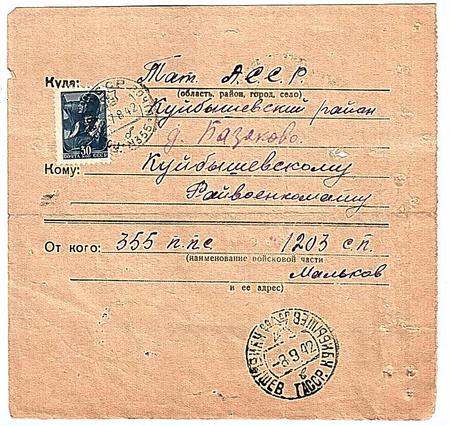 Куда: Тат. А.С.С.Р.
(область, район, город, село)
Куйбышевский район
д. Базяково.
Кому: Куйбышевскому
Райвоенкомату
От кого: 355 п.п.с 1203 с.п.
(наименование войсковой части
Мальков
и ее адрес)
30
ПОЧТА СССР
7 8 42
-8.9.42
КУЙБЫШЕВ ТАССР